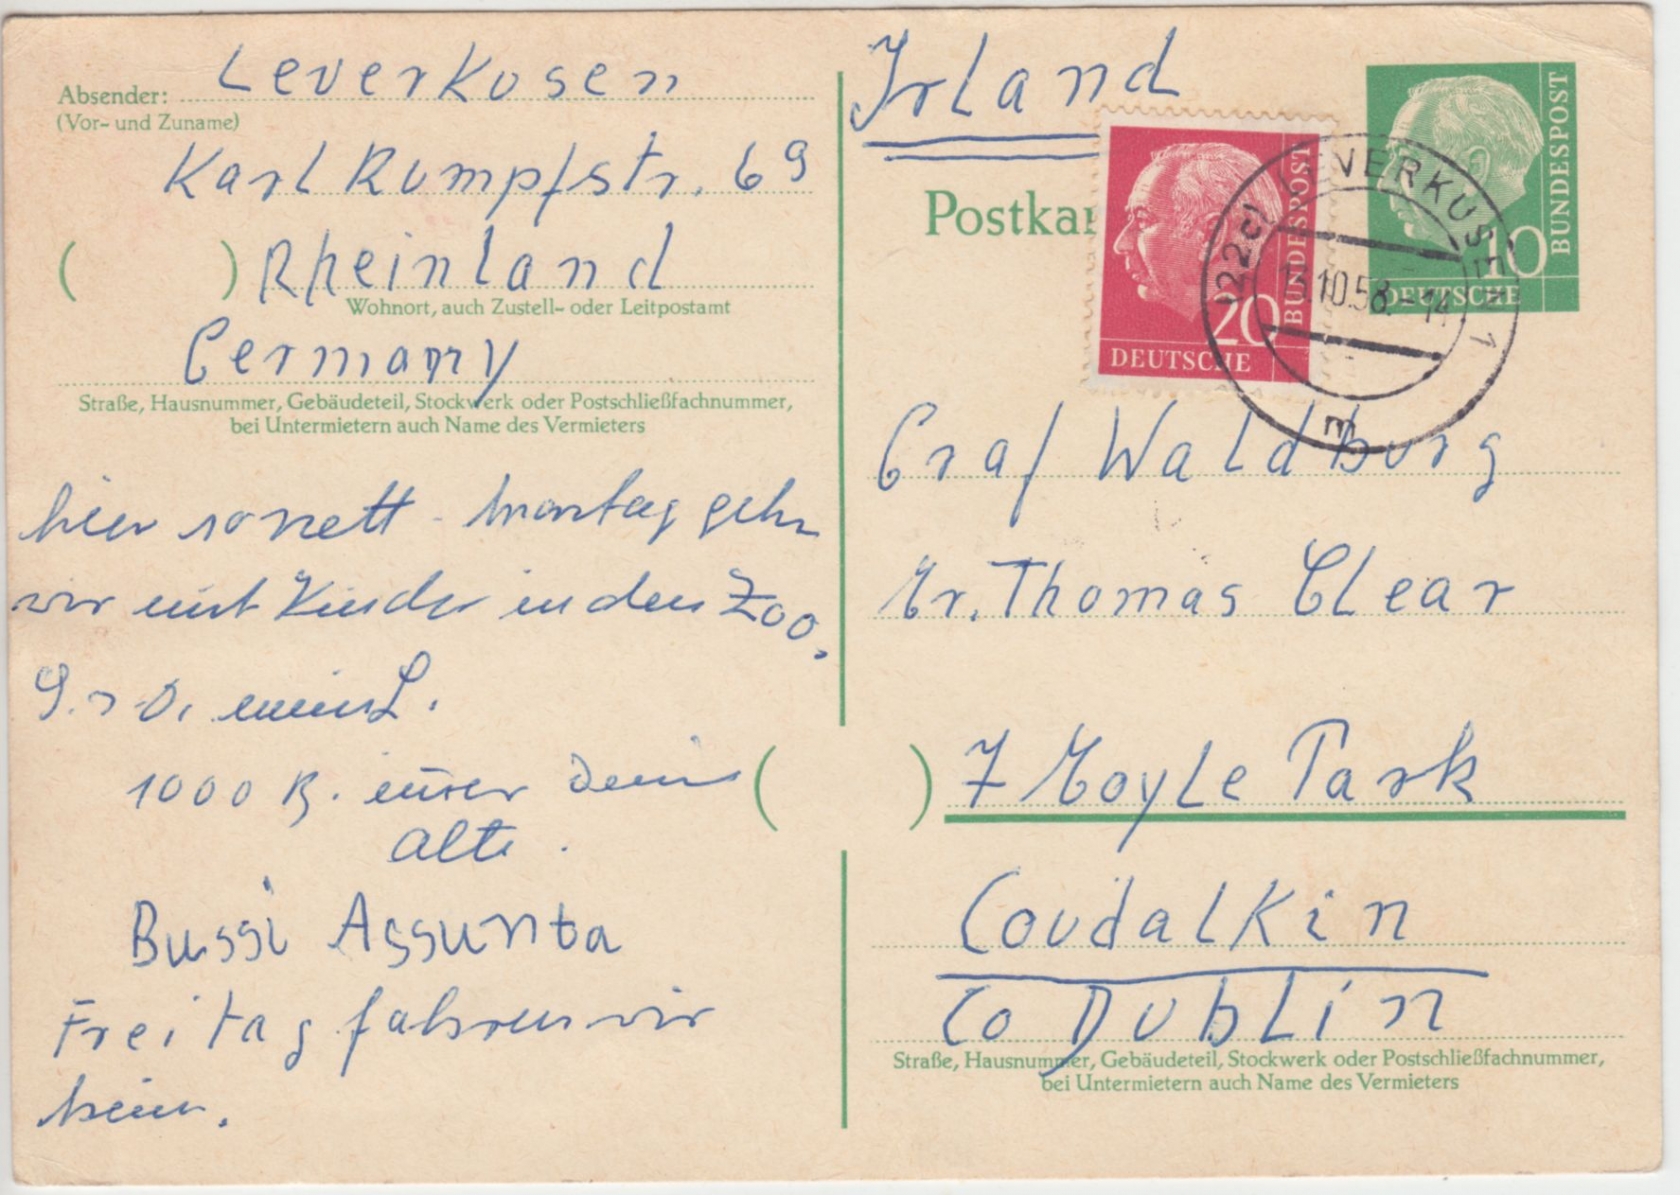 Absender: Leverkusen
(Vor- und Zuname)
Karl Rumpfstr. 69
( ) Rheinland
Wohnort, auch Zustell- oder Leitpostamt
Germany
Straße, Hausnummer, Gebäudeteil, Stockwerk oder Postschließfachnummer,
bei Untermietern auch Name des Vermieters
hier so nett - Montag gehn
wir mit Kinder in den Zoo.
1000 B. immer Dein
Alte.
Bussi Assunta
Freitag fahren wir
heim.
Irland
Postkar
20
DEUTSCHE
BUNDESPOST
10
DEUTSCHE
BUNDESPOST
(22c) LEVERKUSEN 1
13.10.58.-14
m
Graf Waldburg
Mr. Thomas Clear
( ) 7 Moyle Park
Coudalkin
Co Dublin
Straße, Hausnummer, Gebäudeteil, Stockwerk oder Postschließfachnummer,
bei Untermietern auch Name des Vermieters